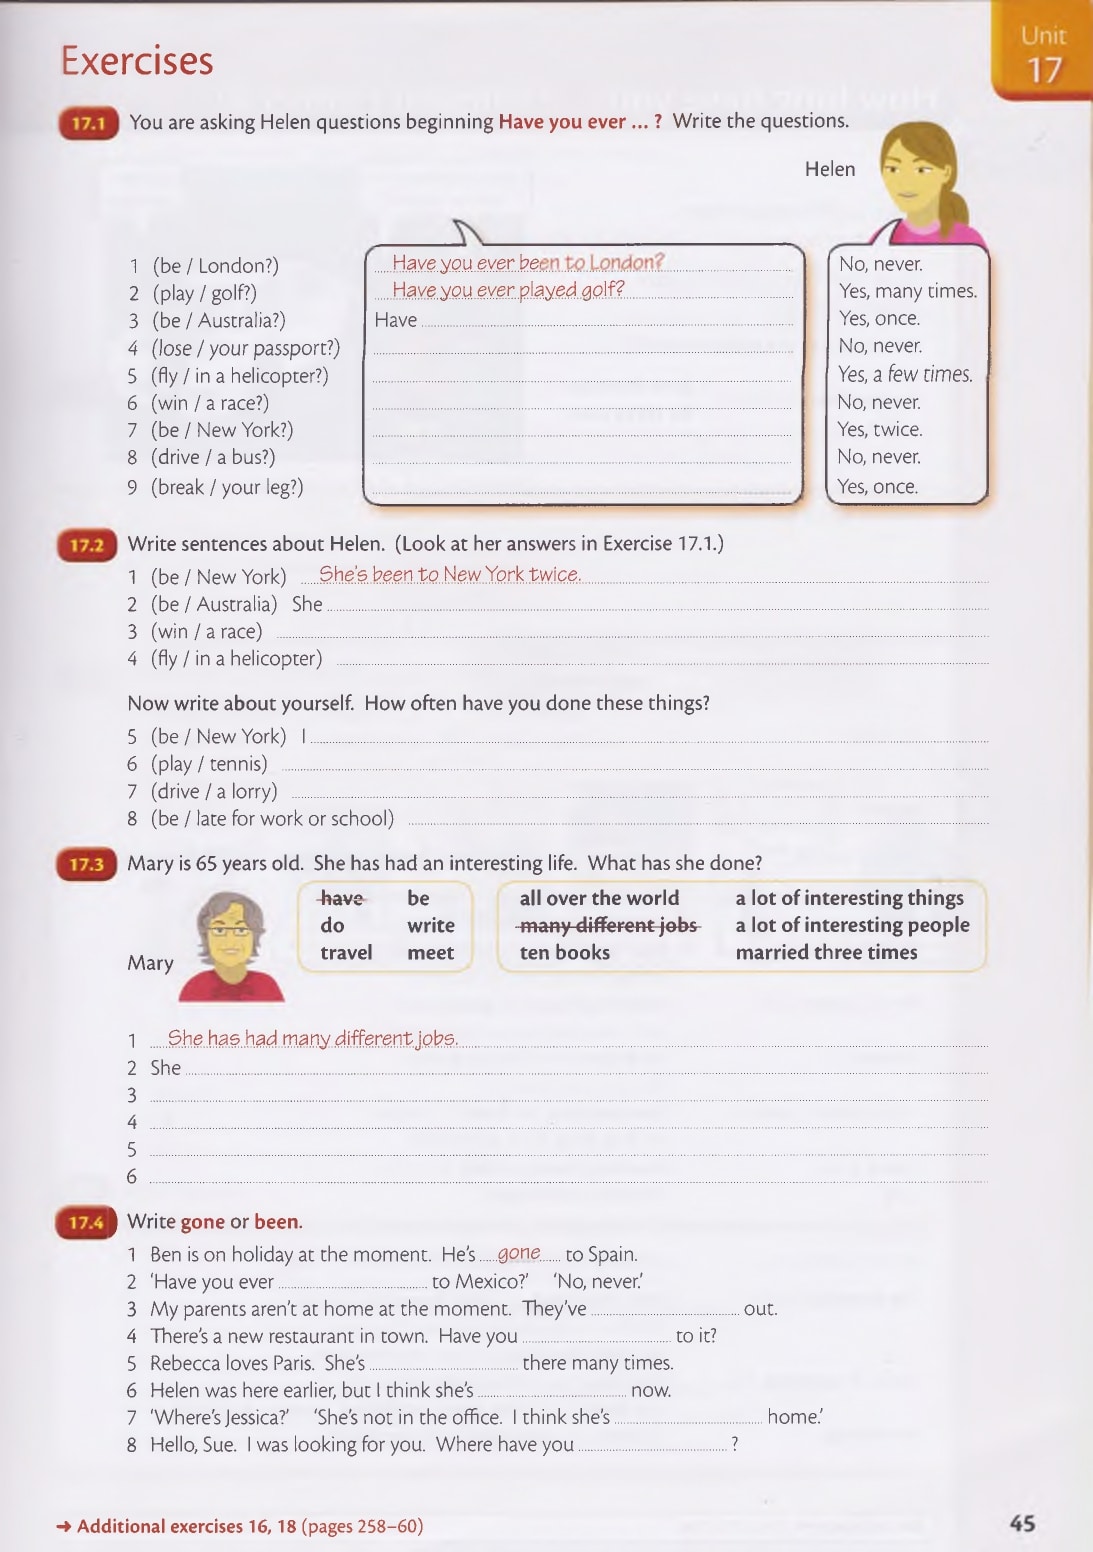 Exercises
Unit
17
17.1 You are asking Helen questions beginning Have you ever ... ? Write the questions.
Helen
1 (be / London?) Have you ever been to London? No, never.
2 (play / golf?) Have you ever played golf? Yes, many times.
3 (be / Australia?) Have Yes, once.
4 (lose / your passport?) No, never.
5 (fly / in a helicopter?) Yes, a few times.
6 (win / a race?) No, never.
7 (be / New York?) Yes, twice.
8 (drive / a bus?) No, never.
9 (break / your leg?) Yes, once.
17.2 Write sentences about Helen. (Look at her answers in Exercise 17.1.)
1 (be / New York) She's been to New York twice.
2 (be / Australia) She
3 (win / a race)
4 (fly / in a helicopter)
Now write about yourself. How often have you done these things?
5 (be / New York) I
6 (play / tennis)
7 (drive / a lorry)
8 (be / late for work or school)
17.3 Mary is 65 years old. She has had an interesting life. What has she done?
have be all over the world a lot of interesting things
do write many different jobs a lot of interesting people
travel meet ten books married three times
Mary
1 She has had many different jobs.
2 She
3
4
5
6
17.4 Write gone or been.
1 Ben is on holiday at the moment. He's gone to Spain.
2 'Have you ever to Mexico?' 'No, never.'
3 My parents aren't at home at the moment. They've out.
4 There's a new restaurant in town. Have you to it?
5 Rebecca loves Paris. She's there many times.
6 Helen was here earlier, but I think she's now.
7 'Where's Jessica?' 'She's not in the office. I think she's home.'
8 Hello, Sue. I was looking for you. Where have you ?
➜ Additional exercises 16, 18 (pages 258–60)
45